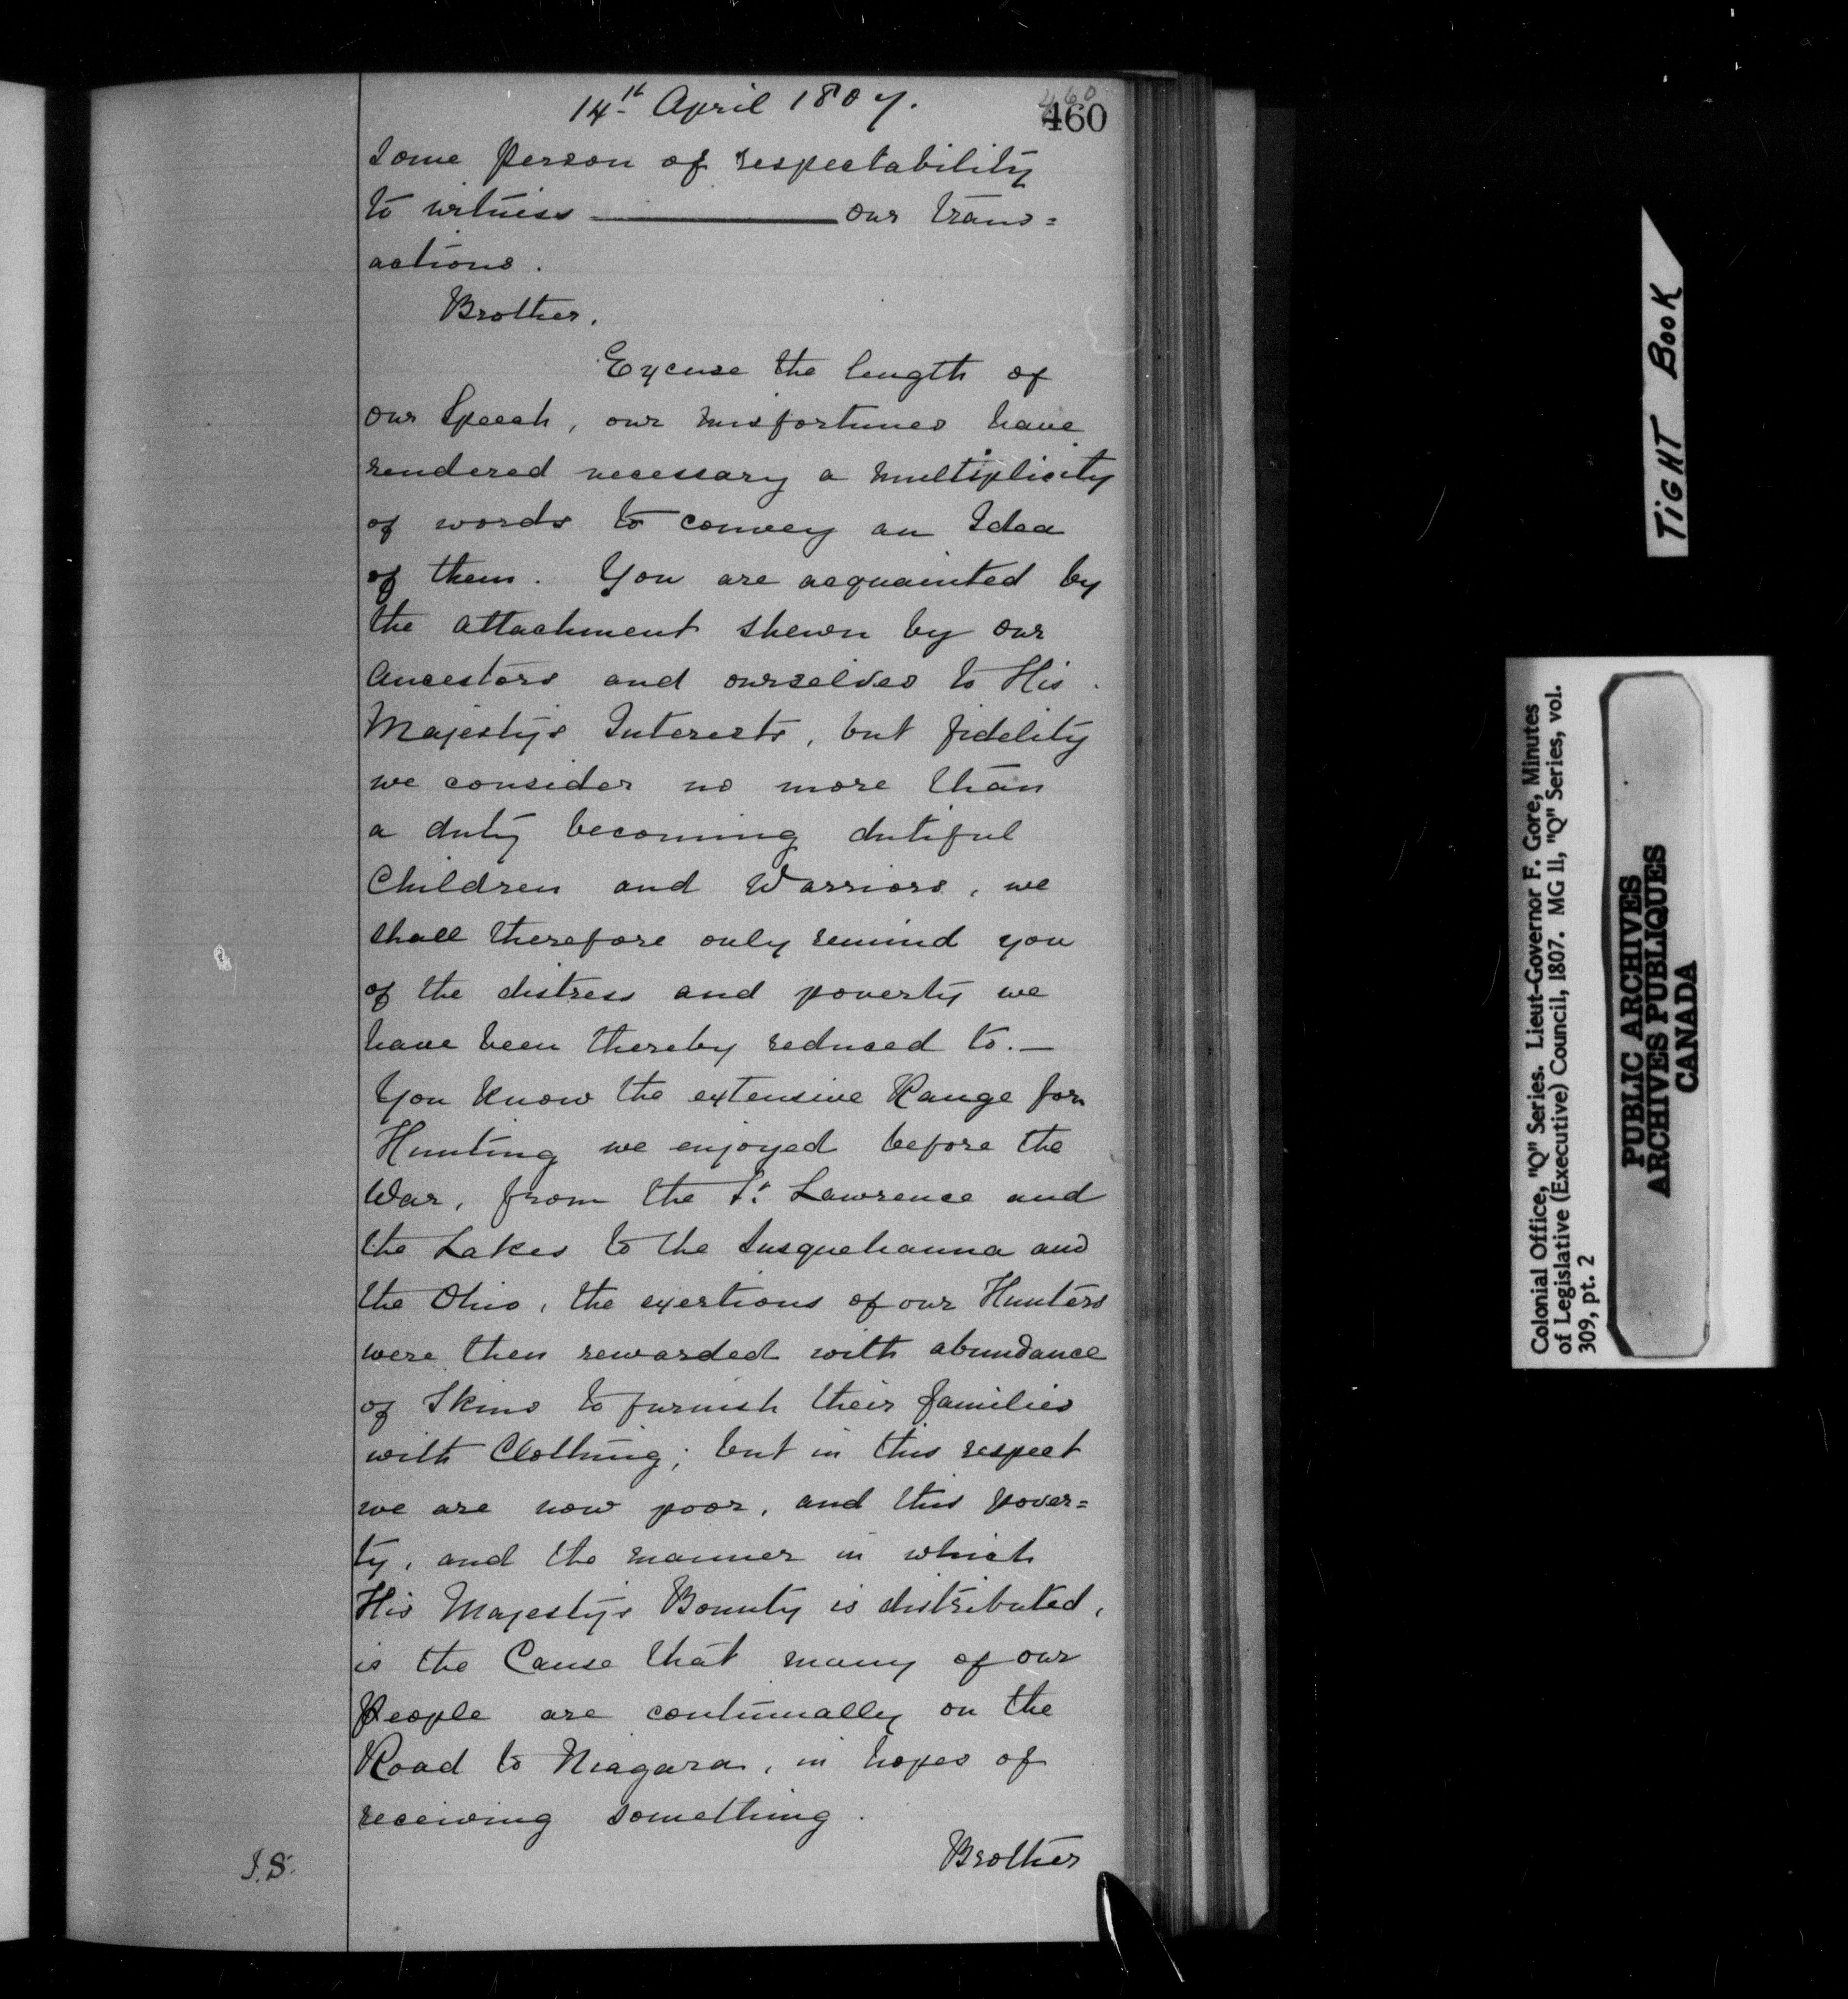 14th April 1807.
460
460
some person of respectability
to witness ——— our trans=
actions.
Brother,
Excuse the length of
our Speech, our misfortunes have
rendered necessary a multiplicity
of words to convey an Idea
of them. You are acquainted by
the attachment shewn by our
Ancestors and ourselves to His
Majesty's Interests, but fidelity
we consider no more than
a duty becoming dutiful
Children and Warriors, we
shall therefore only remind you
of the distress and poverty we
have been thereby reduced to.—
You know the extensive Range for
Hunting we enjoyed before the
War, from the St. Lawrence and
the Lakes to the Susquehanna and
the Ohio, the exertions of our Hunters
were then rewarded with abundance
of Skins to furnish their families
with Clothing; but in this respect
we are now poor, and this pover=
ty, and the manner in which
His Majesty's Bounty is distributed,
is the Cause that many of our
People are continually on the
Road to Niagara, in hopes of
receiving something.
Brother
J.S.
TIGHT BOOK
Colonial Office, "Q" Series. Lieut-Governor F. Gore, Minutes
of Legislative (Executive) Council, 1807. MG 11, "Q" Series, vol.
309, pt. 2
PUBLIC ARCHIVES
ARCHIVES PUBLIQUES
CANADA